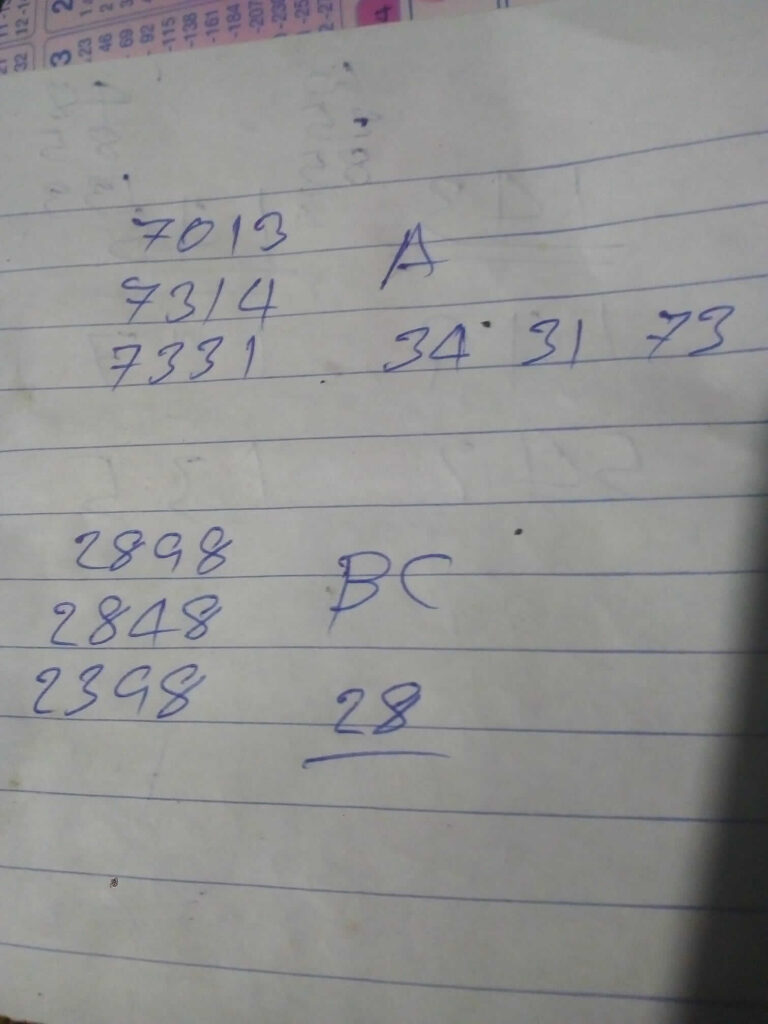 7013
A
7314
7331 34 31 73
2898
BC
2848
2398
28